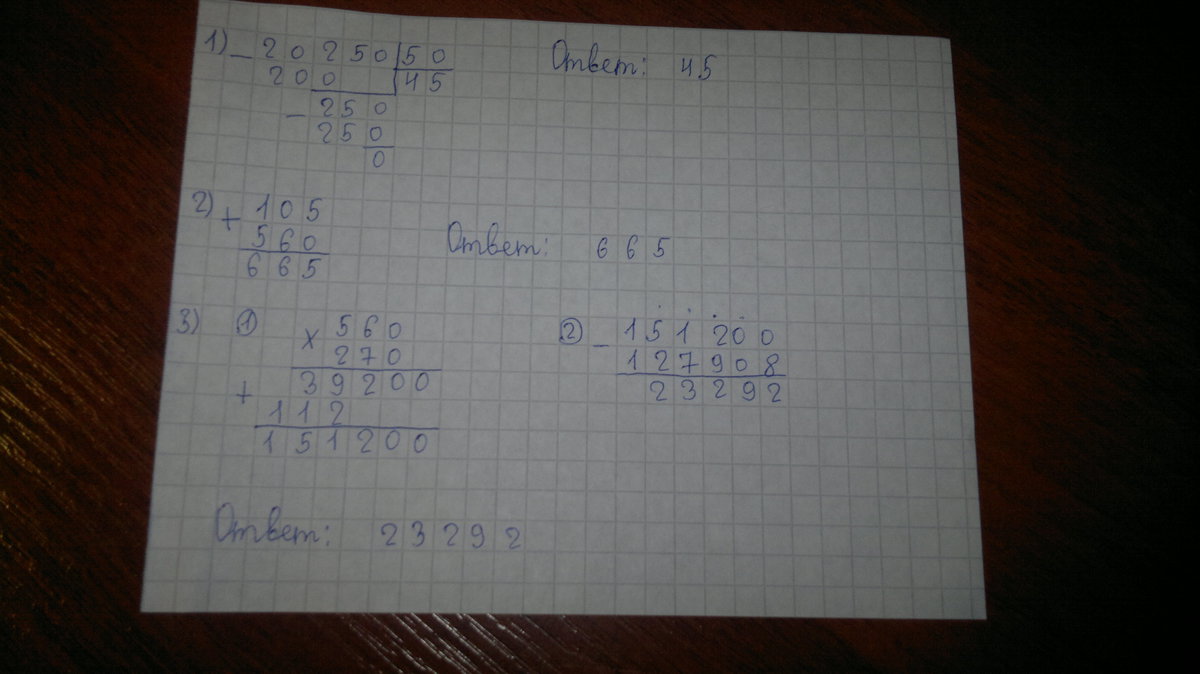 1) - 20250 | 50 Ответ: 45
200 | 45
- 250
250
0
2) + 105
560 Ответ: 665
665
3) ① × 560 ② - 151200
270 127908
+ 39200 23292
112
151200
Ответ: 23292